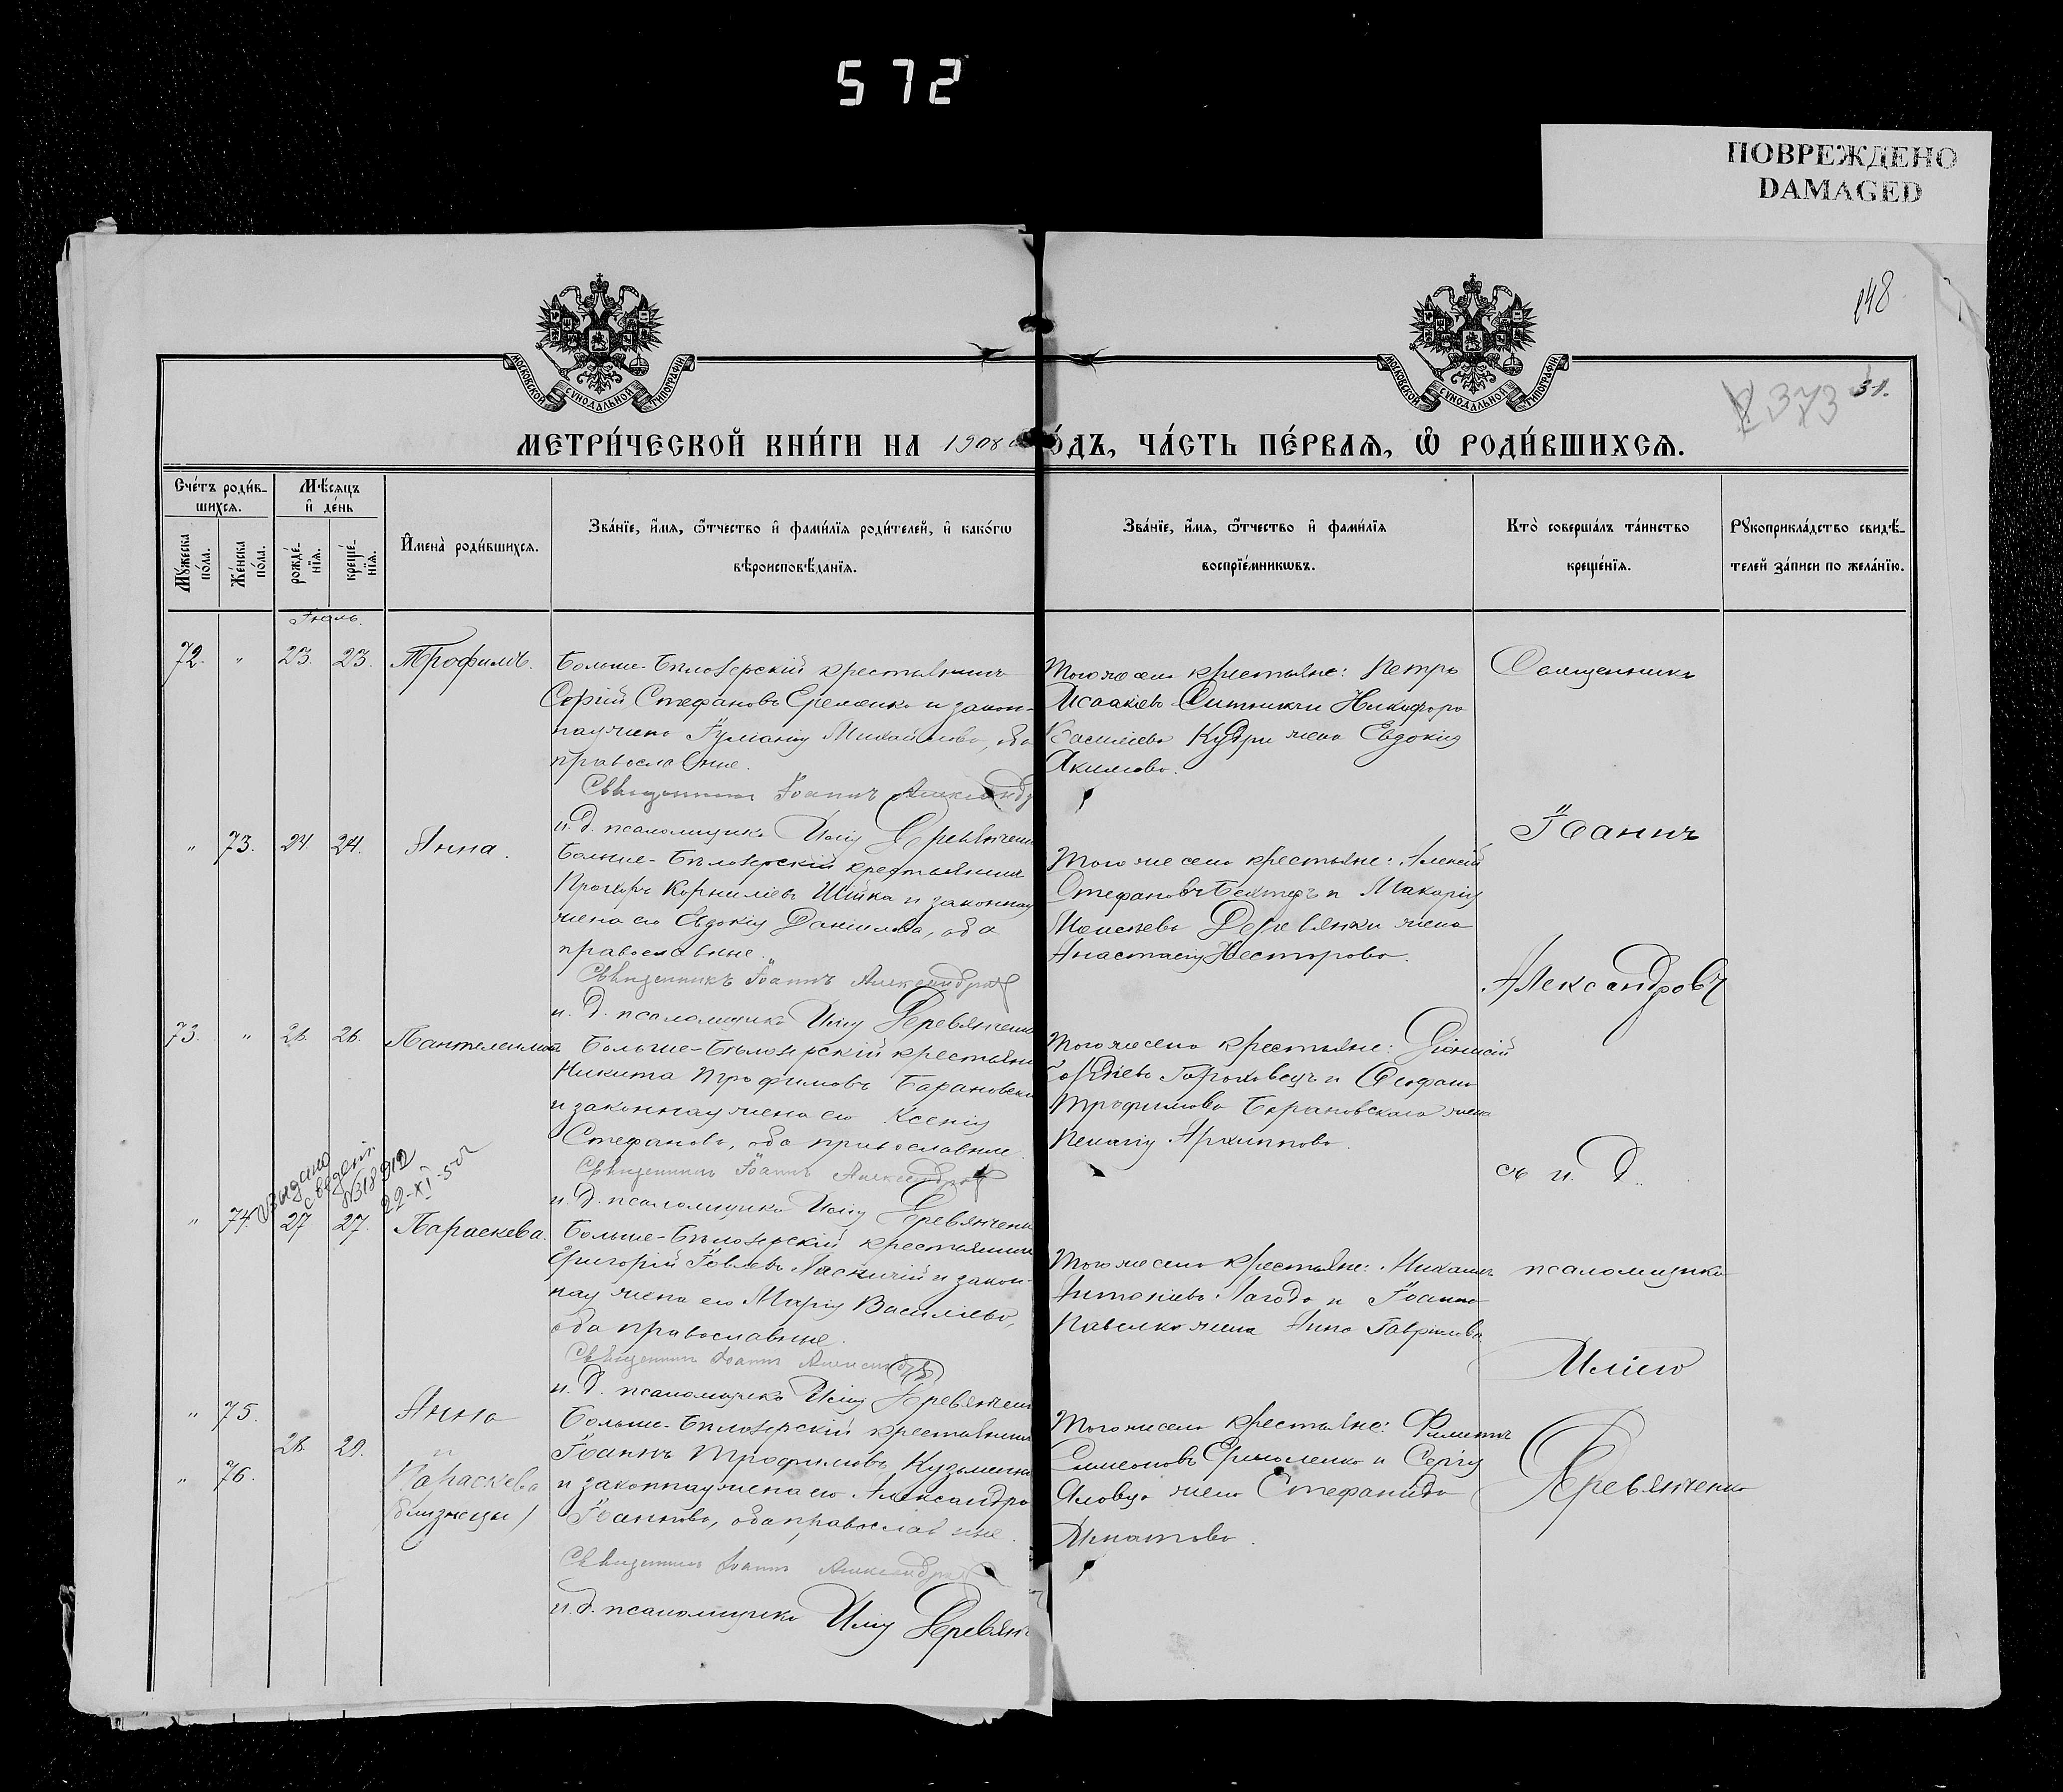 572
ПОВРЕЖДЕНО
DAMAGED
148
МОСКОВСКОЙ СѴНОДАЛЬНОЙ ТИПОГРАФІИ
МОСКОВСКОЙ СѴНОДАЛЬНОЙ ТИПОГРАФІИ
373
31.
МЕТРИ́ЧЕСКОЙ КНИ́ГИ НА 1908 О́ДЪ, ЧА́СТЬ ПЕ́РВАѦ, Ѿ РОДИ́ВШИХСѦ.
Сче́тъ роди́в-
шихсѧ.
Мꙋ́жеска по́ла.
Же́нска по́ла.
Мѣ́сѧцъ
и҆ де́нь
рожде́-нїѧ.
креще́-нїѧ.
И҆мена̀ роди́вшихсѧ.
Зва́нїе, и҆́мѧ, ѻ҆́тчество и҆ фами́лїѧ роди́телей, и҆ како́гѡ
вѣроисповѣ́данїѧ.
Зва́нїе, и҆́мѧ, ѻ҆́тчество и҆ фами́лїѧ
воспрїе́мникѡвъ.
Кто̀ соверша́лъ та́инство
креще́нїѧ.
Рꙋкоприкла́дство свидѣ́-
телей за́писи по жела́нїю.
Іюль.
72. " 23. 23. Трофимъ.
Больше-Бѣлозерскій крестьянинъ
Сергій Стефановъ Еременко и закон-
ная жена Іуліанія Михайлова, оба
православные.
Священникъ Іоаннъ Александр
и. д. псаломщика Илія Деревянченк
Того же села крестьяне: Петръ
Исаакіевъ Ситникъ и Никифора
Василіева Кудри жена Евдокія
Акимова.
" 73. 24. 24. Анна.
Больше-Бѣлозерскій крестьянинъ
Прохоръ Корниліевъ Шійка и законная
жена его Евдокія Даніилова, оба
православные.
Священникъ Іоаннъ Александровъ
и. д. псаломщика Илія Деревянченк
Того же села крестьяне: Алексій
Стефановъ и Макарія
Моисеева Деревянки жена
Анастасія Несторова.
73. " 26. 26. Пантелеимонъ
Больше-Бѣлозерскій крестьянин
Никита Трофимовъ Барановскі
и законная жена его Ксенія
Стефанова, оба православные.
Священникъ Іоаннъ Александровъ
и. д. псаломщика Илія Деревянченк
Того же села крестьяне: Діонисій
Гороховецъ и Стефана
Трофимова Барановскаго жена
Пелагія Архиппова.
Выдано
сведен.
22-XI-50
" 74. 27 27. Параскева.
Больше-Бѣлозерскій крестьянинъ
Григорій Іовлевъ и закон-
ная жена его Марія Василіева,
оба православные.
Священникъ Іоаннъ Александровъ
и. д. псаломщика Илія Деревянченк
Того же села крестьяне: Михаилъ
Антоніевъ Лагода и Іоанна
Павелко жена Анна Гавріилова
" 75. Анна
28. 29. и
" 76. Параскева
/близнецы/
Больше-Бѣлозерскій крестьянинъ
Іоаннъ Трофимовъ Кузьменко
и законная жена его Александра
Іоаннова, оба православные.
Священникъ Іоаннъ Александровъ
и. д. псаломщика Илія Деревянч
Того же села крестьяне: Филиппъ
Симеоновъ Ермоленко и Сергія
Яловца жена Стефанида
Игнатова.
Священникъ
Іоаннъ
Александровъ
съ и. д.
псаломщика
Иліею
Деревянченко